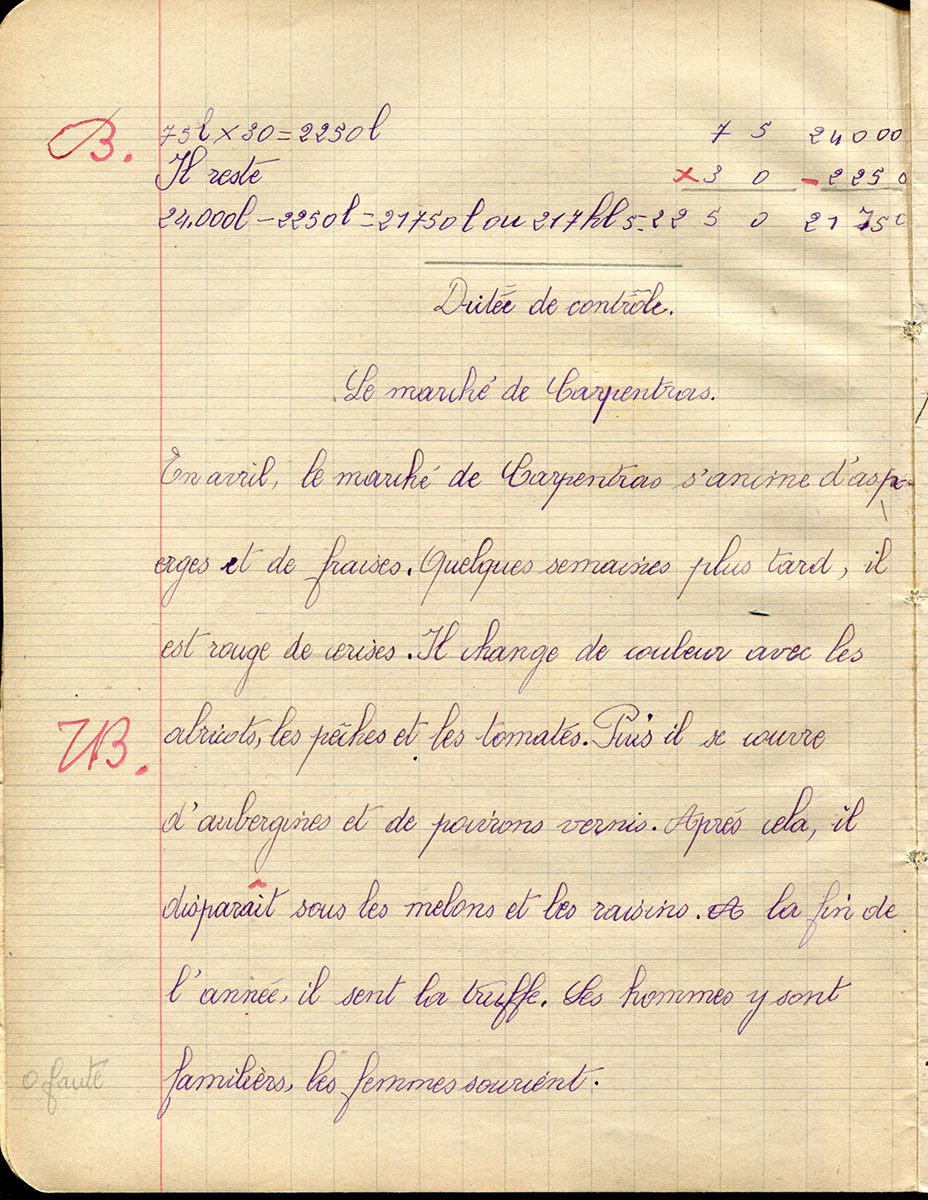 B.
75l × 30 = 2250l 7 5 24000
Il reste × 3 0 - 2250
24.000l - 2250l = 21750l ou 217hl 5 = 22 5 0 21750
Dictée de contrôle.
Le marché de Carpentras.
En avril, le marché de Carpentras s'anime d'asp-
erges et de fraises. Quelques semaines plus tard, il
est rouge de cerises. Il change de couleur avec les
abricots, les pêches et les tomates. Puis il se couvre
TB.
d'aubergines et de poivrons vernis. Après cela, il
disparaît sous les melons et les raisins. A la fin de
l'année, il sent la truffe. Les hommes y sont
familiers, les femmes sourient.
0 faute